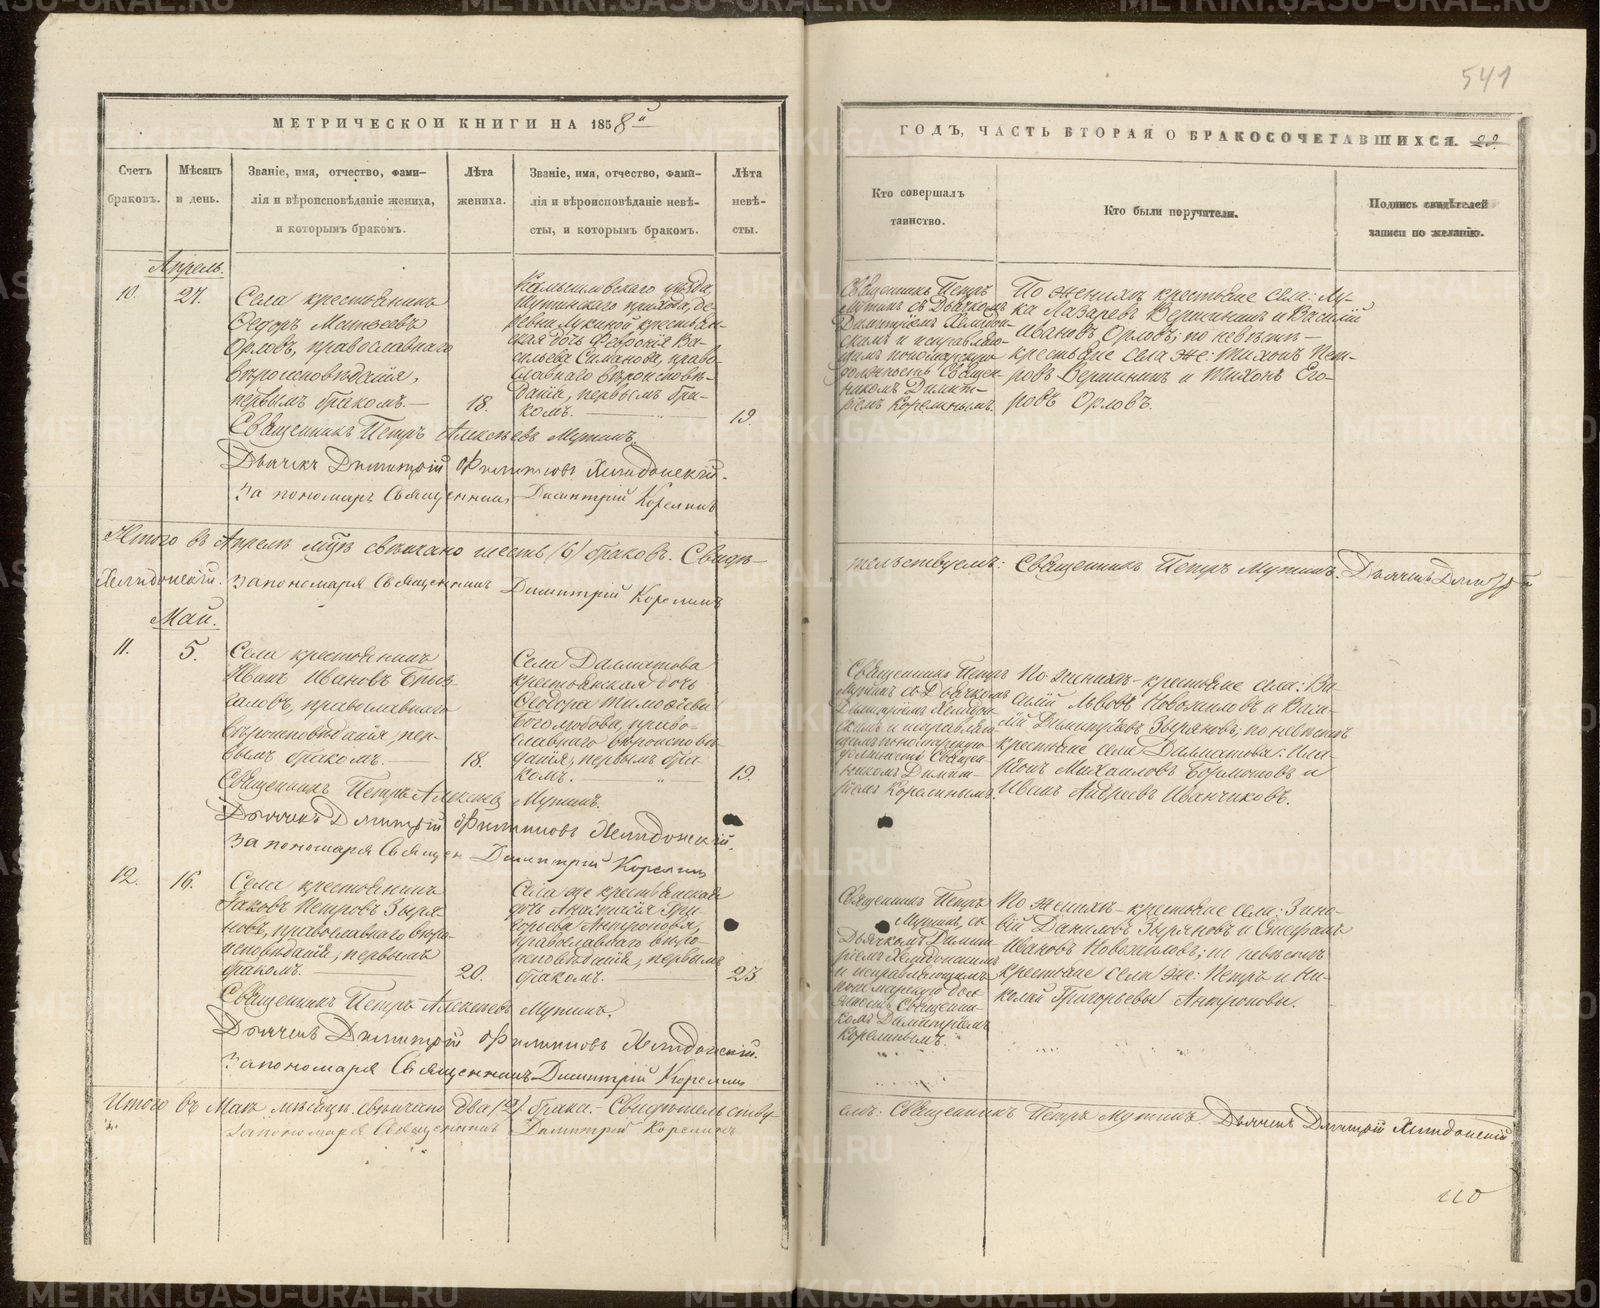 541
МЕТРИЧЕСКОИ КНИГИ НА 1858й
ГОДЪ, ЧАСТЬ ВТОРАЯ О БРАКОСОЧЕТАВШИХСЯ. 22.
Счетъ браковъ.
Мѣсяцъ и день.
Званіе, имя, отчество, фами-
лія и вѣроисповѣданіе жениха,
и которымъ бракомъ.
Лѣта жениха.
Званіе, имя, отчество, фами-
лія и вѣроисповѣданіе невѣ-
сты, и которымъ бракомъ.
Лѣта невѣ-
сты.
Кто совершалъ
таинство.
Кто были поручители.
Подпись свидѣтелей
записи по желанію.
Апрель.
10.
27.
Села крестьянинъ
Ѳедоръ Матвеевъ
Орловъ, православнаго
вѣроисповѣданія,
первымъ бракомъ.
18.
Камышловскаго уѣзда
прихода, де-
ревни крестьян-
ская дочь Феврония Ва-
сильева Симанова, право-
славнаго вѣроисповѣ-
данія, первымъ бра-
комъ.
19.
Священникъ Петръ
Мутинъ съ Дьячкомъ
Димитріемъ Хелидон-
скимъ и исправляю-
щимъ пономарскую
должность Священ-
никомъ Димит-
ріемъ Корелинымъ.
По женихѣ крестьяне села: Лу-
ка Лазаревъ Вершининъ и Василій
Ивановъ Орловъ; по невѣстѣ
крестьяне села же: Тихонъ Пет-
ровъ Вершининъ и Тихонъ Его-
ровъ Орловъ.
Священникъ Петръ Алексѣевъ Мутинъ.
Дьячекъ Димитрій Филиповъ Хелидонскій.
За пономаря Священникъ Димитрій Корелинъ
Итого въ Апрелѣ мцѣ свѣнчано шесть (6) браковъ. Свидѣ-
тельствуемъ: Священникъ Петръ Мутинъ. Дьячекъ Димитрій
Хелидонскій. За пономаря Священникъ Димитрій Корелинъ
Май.
11.
5.
Села крестьянинъ
Иванъ Ивановъ Брыз-
галовъ, православнаго
вѣроисповѣданія, пер-
вымъ бракомъ.
18.
Села Далматова
крестьянская дочь
Ѳеодора Тимофеева
Боголюбова, право-
славнаго вѣроисповѣ-
данія, первымъ бра-
комъ.
19.
Священникъ Петръ
Мутинъ съ Дьячкомъ
Димитріемъ Хелидон-
скимъ и исправляю-
щимъ пономарскую
должность Священ-
никомъ Димит-
ріемъ Корелинымъ.
По женихѣ крестьяне села: Ва-
силій Львовъ Новожиловъ и Васи-
лій Димитріевъ Зыряновъ; по невѣстѣ
крестьяне села Далматова: Ила-
ріонъ Михаиловъ и
Иванъ Андреевъ Иванчиковъ.
Священникъ Петръ Алексѣевъ Мутинъ.
Дьячекъ Димитрій Филиповъ Хелидонскій.
За пономаря Священ Димитрій Корелинъ
12.
16.
Села крестьянинъ
Іаковъ Петровъ Зыря-
новъ, православнаго вѣро-
исповѣданія, первымъ
бракомъ.
20.
Села же крестьянская
дочь Анастасія Гри-
горьева Антропова,
православнаго вѣро-
исповѣданія, первымъ
бракомъ.
23.
Священникъ Петръ
Мутинъ съ
Дьячкомъ Димит-
ріемъ Хелидонскимъ
и исправляющимъ
пономарскую дол-
жность Священни-
комъ Димитріемъ
Корелинымъ.
По женихѣ крестьяне села: Зино-
вій Даниловъ Зыряновъ и Стефанъ
Ивановъ Новожиловъ; по невѣстѣ
крестьяне села же: Петръ и Ни-
колай Григорьевы Антроповы.
Священникъ Петръ Алексѣевъ Мутинъ.
Дьячекъ Димитрій Филиповъ Хелидонскій.
За пономаря Священникъ Димитрій Корелинъ
Итого въ Маѣ мѣсяцѣ свѣнчано два (2) брака. Свидѣтельству-
емъ: Священникъ Петръ Мутинъ Дьячекъ Димитрій Хелидонскій.
За пономаря Священникъ Димитрій Корелинъ
110
METRIKI.GASO-URAL.RU